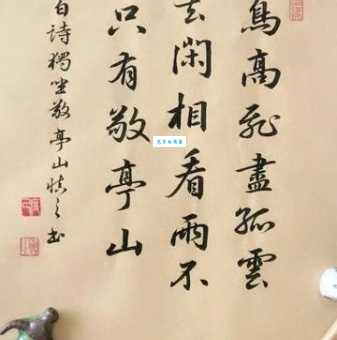 鳥高飛盡孤雲
去閑相看兩不
只有敬亭山
白詩獨坐敬亭山慎之书